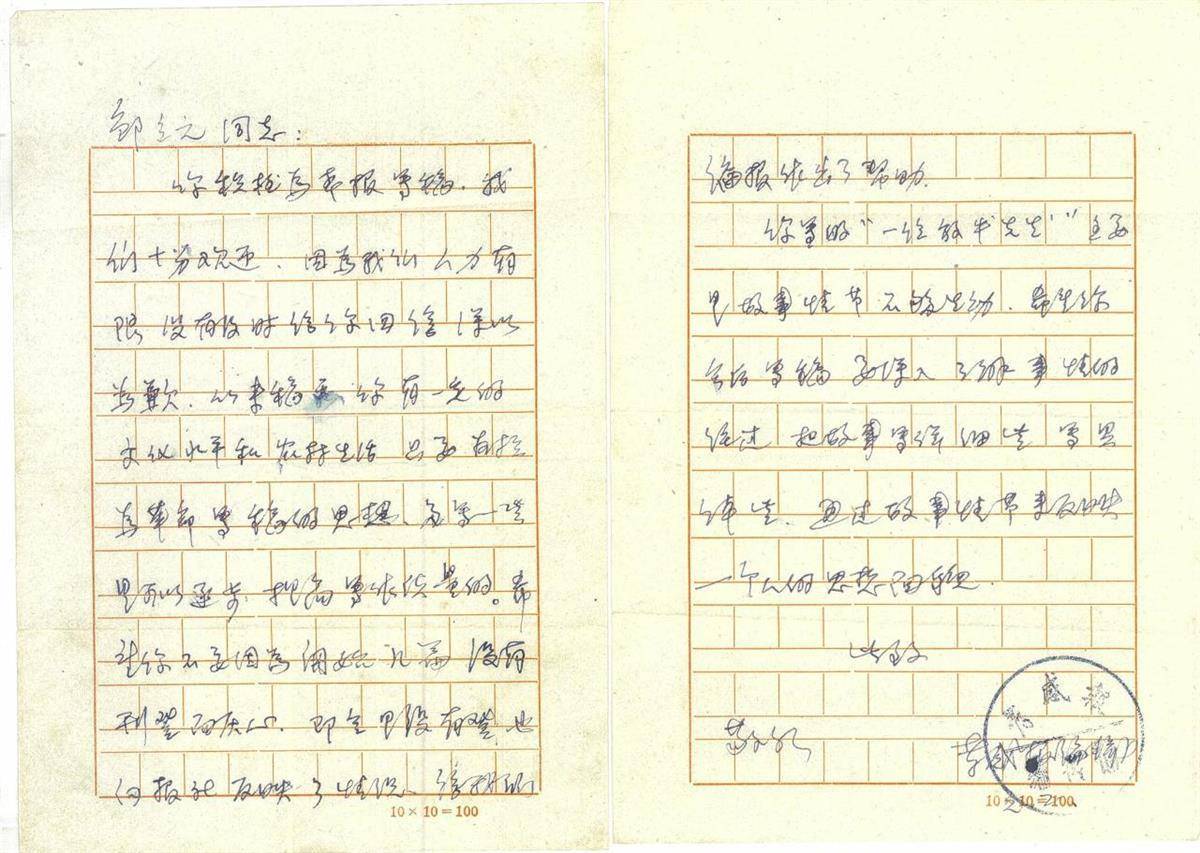 邹立元同志：
你积极为本报写稿，我
们十分欢迎，因为我们人力有
限没有及时给你回信深以
为歉，从来稿看你有一定的
文化水平和农村生活只要有
为革命写稿的思想，多写一些
是可以逐步提高写作质量的。希
望你不要因为开始几篇没有
刊登而灰心，即令是没有登，也
向报社反映了情况，给
编报作出了帮助。
你写的“一位放牛先生”主要
是故事情节不够生动，希望你
今后写稿要深入了解事情的
经过把故事写详细些写具
体些，通过故事情节来反映
一个人的思想
此致
敬礼
孝感报编辑
孝感报
2
10×10=100
10×10=100